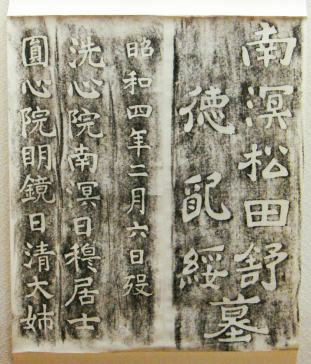 南溟松田舒墓
德配綏
昭和四年二月六日歿
洗心院南溟日穆居士
圓心院明鏡日清大姉